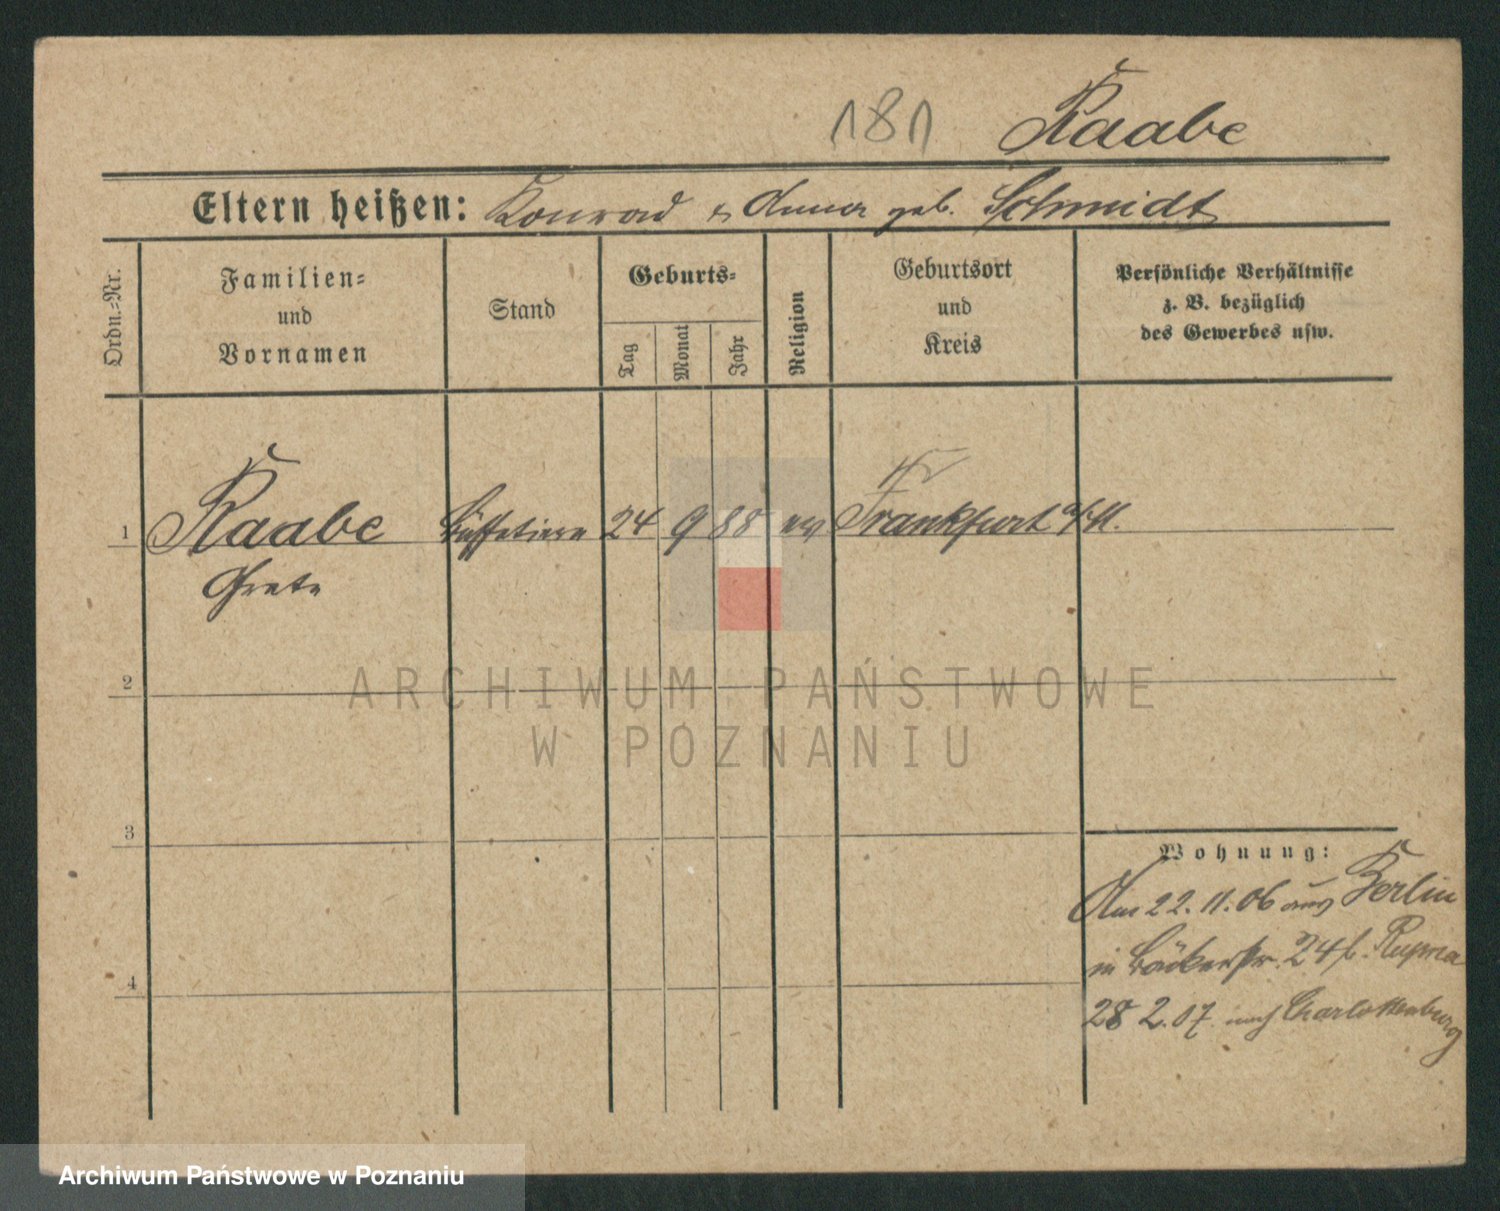 181 Raabe
Eltern heißen: Konrad & Anna geb. Schmidt
Ordn.=Nr.
Familien=
und
Vornamen
Stand
Geburts=
Tag
Monat
Jahr
Religion
Geburtsort
und
Kreis
Persönliche Verhältnisse
z. B. bezüglich
des Gewerbes usw.
1 Raabe Büffetiere 24 9 88 ev Frankfurt a/M.
Grete
2
ARCHIWUM PAŃSTWOWE
W POZNANIU
3
Wohnung:
Am 22.11.06 aus Berlin
in Bäckerstr. 24 b.
4
28 2.07 nach Charlottenburg
Archiwum Państwowe w Poznaniu